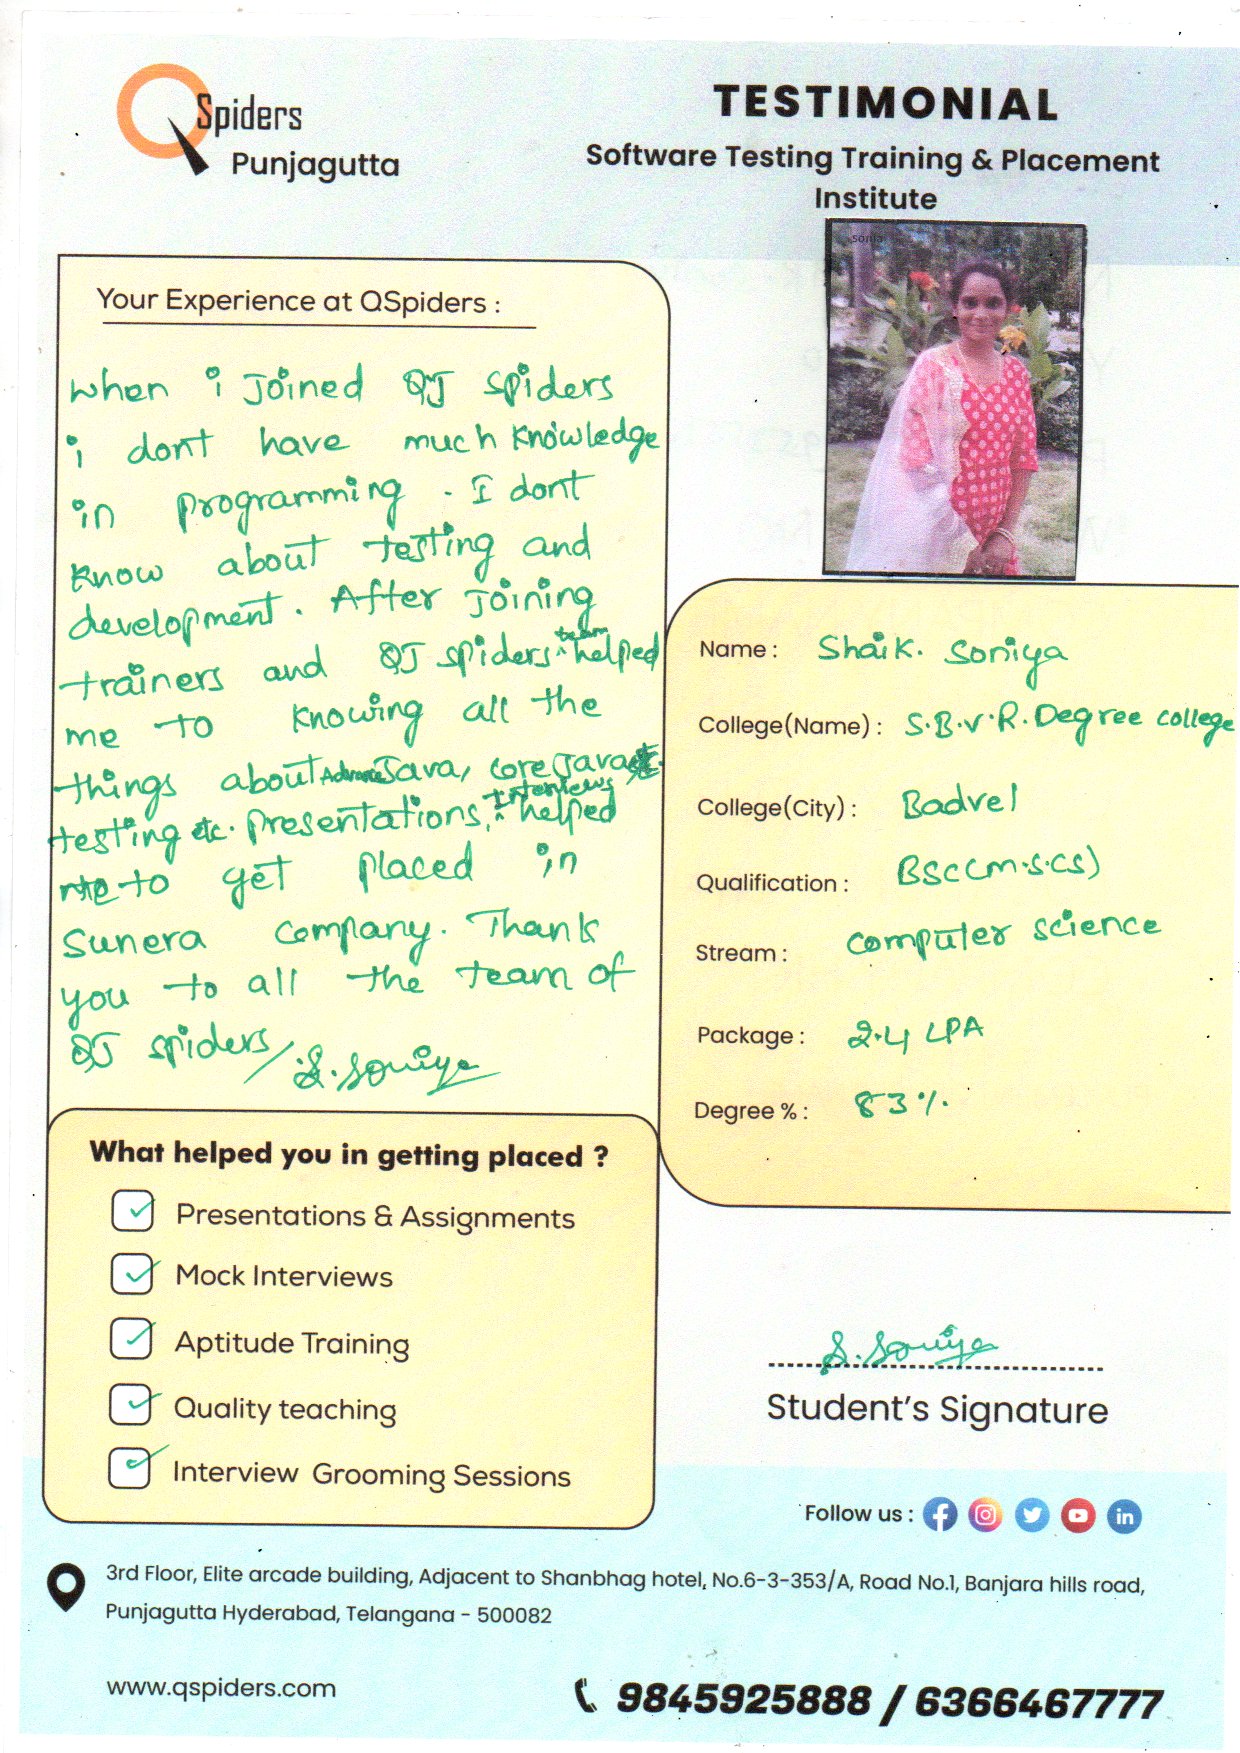 QSpiders
Punjagutta
TESTIMONIAL
Software Testing Training & Placement
Institute
sonia
Your Experience at QSpiders :
When i Joined QJ spiders
i dont have much knowledge
in programming . I dont
know about testing and
development. After Joining
trainers and QJ spiders team helped
me to knowing all the
things about Advance Java, core Java
testing etc. presentations, Interviews helped
me to get placed in
Sunera company. Thank
you to all the team of
QJ spiders/ S. Soniya
Name : Shaik. Soniya
College(Name) : S.B.V.R. Degree college
College(City) : Badvel
Qualification : BSC(m.s.cs)
Stream : computer science
Package : 2.4 LPA
Degree % : 83%.
What helped you in getting placed ?
Presentations & Assignments
Mock Interviews
Aptitude Training
Quality teaching
Interview Grooming Sessions
S. Soniya
Student's Signature
Follow us :
3rd Floor, Elite arcade building, Adjacent to Shanbhag hotel, No.6-3-353/A, Road No.1, Banjara hills road,
Punjagutta Hyderabad, Telangana - 500082
www.qspiders.com
9845925888 / 6366467777